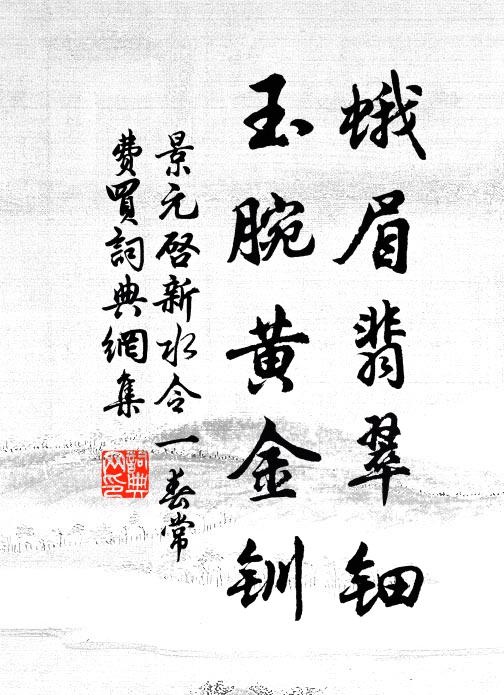 蛾眉翡翠钿
玉腕黄金钏
景元启新水令一春常
费买词典網集
詞典
网印